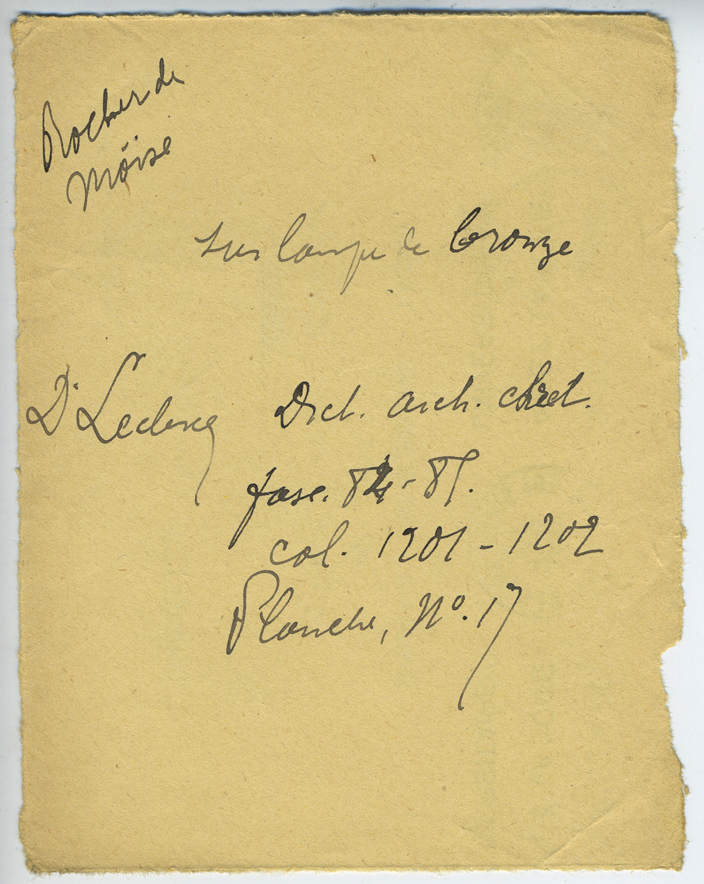 Rocher de
Moïse
sur lampe de bronze
Dr Leclercq Dict. arch. chrét.
fasc. 84-85.
col. 1201-1202
Planche, No. 17